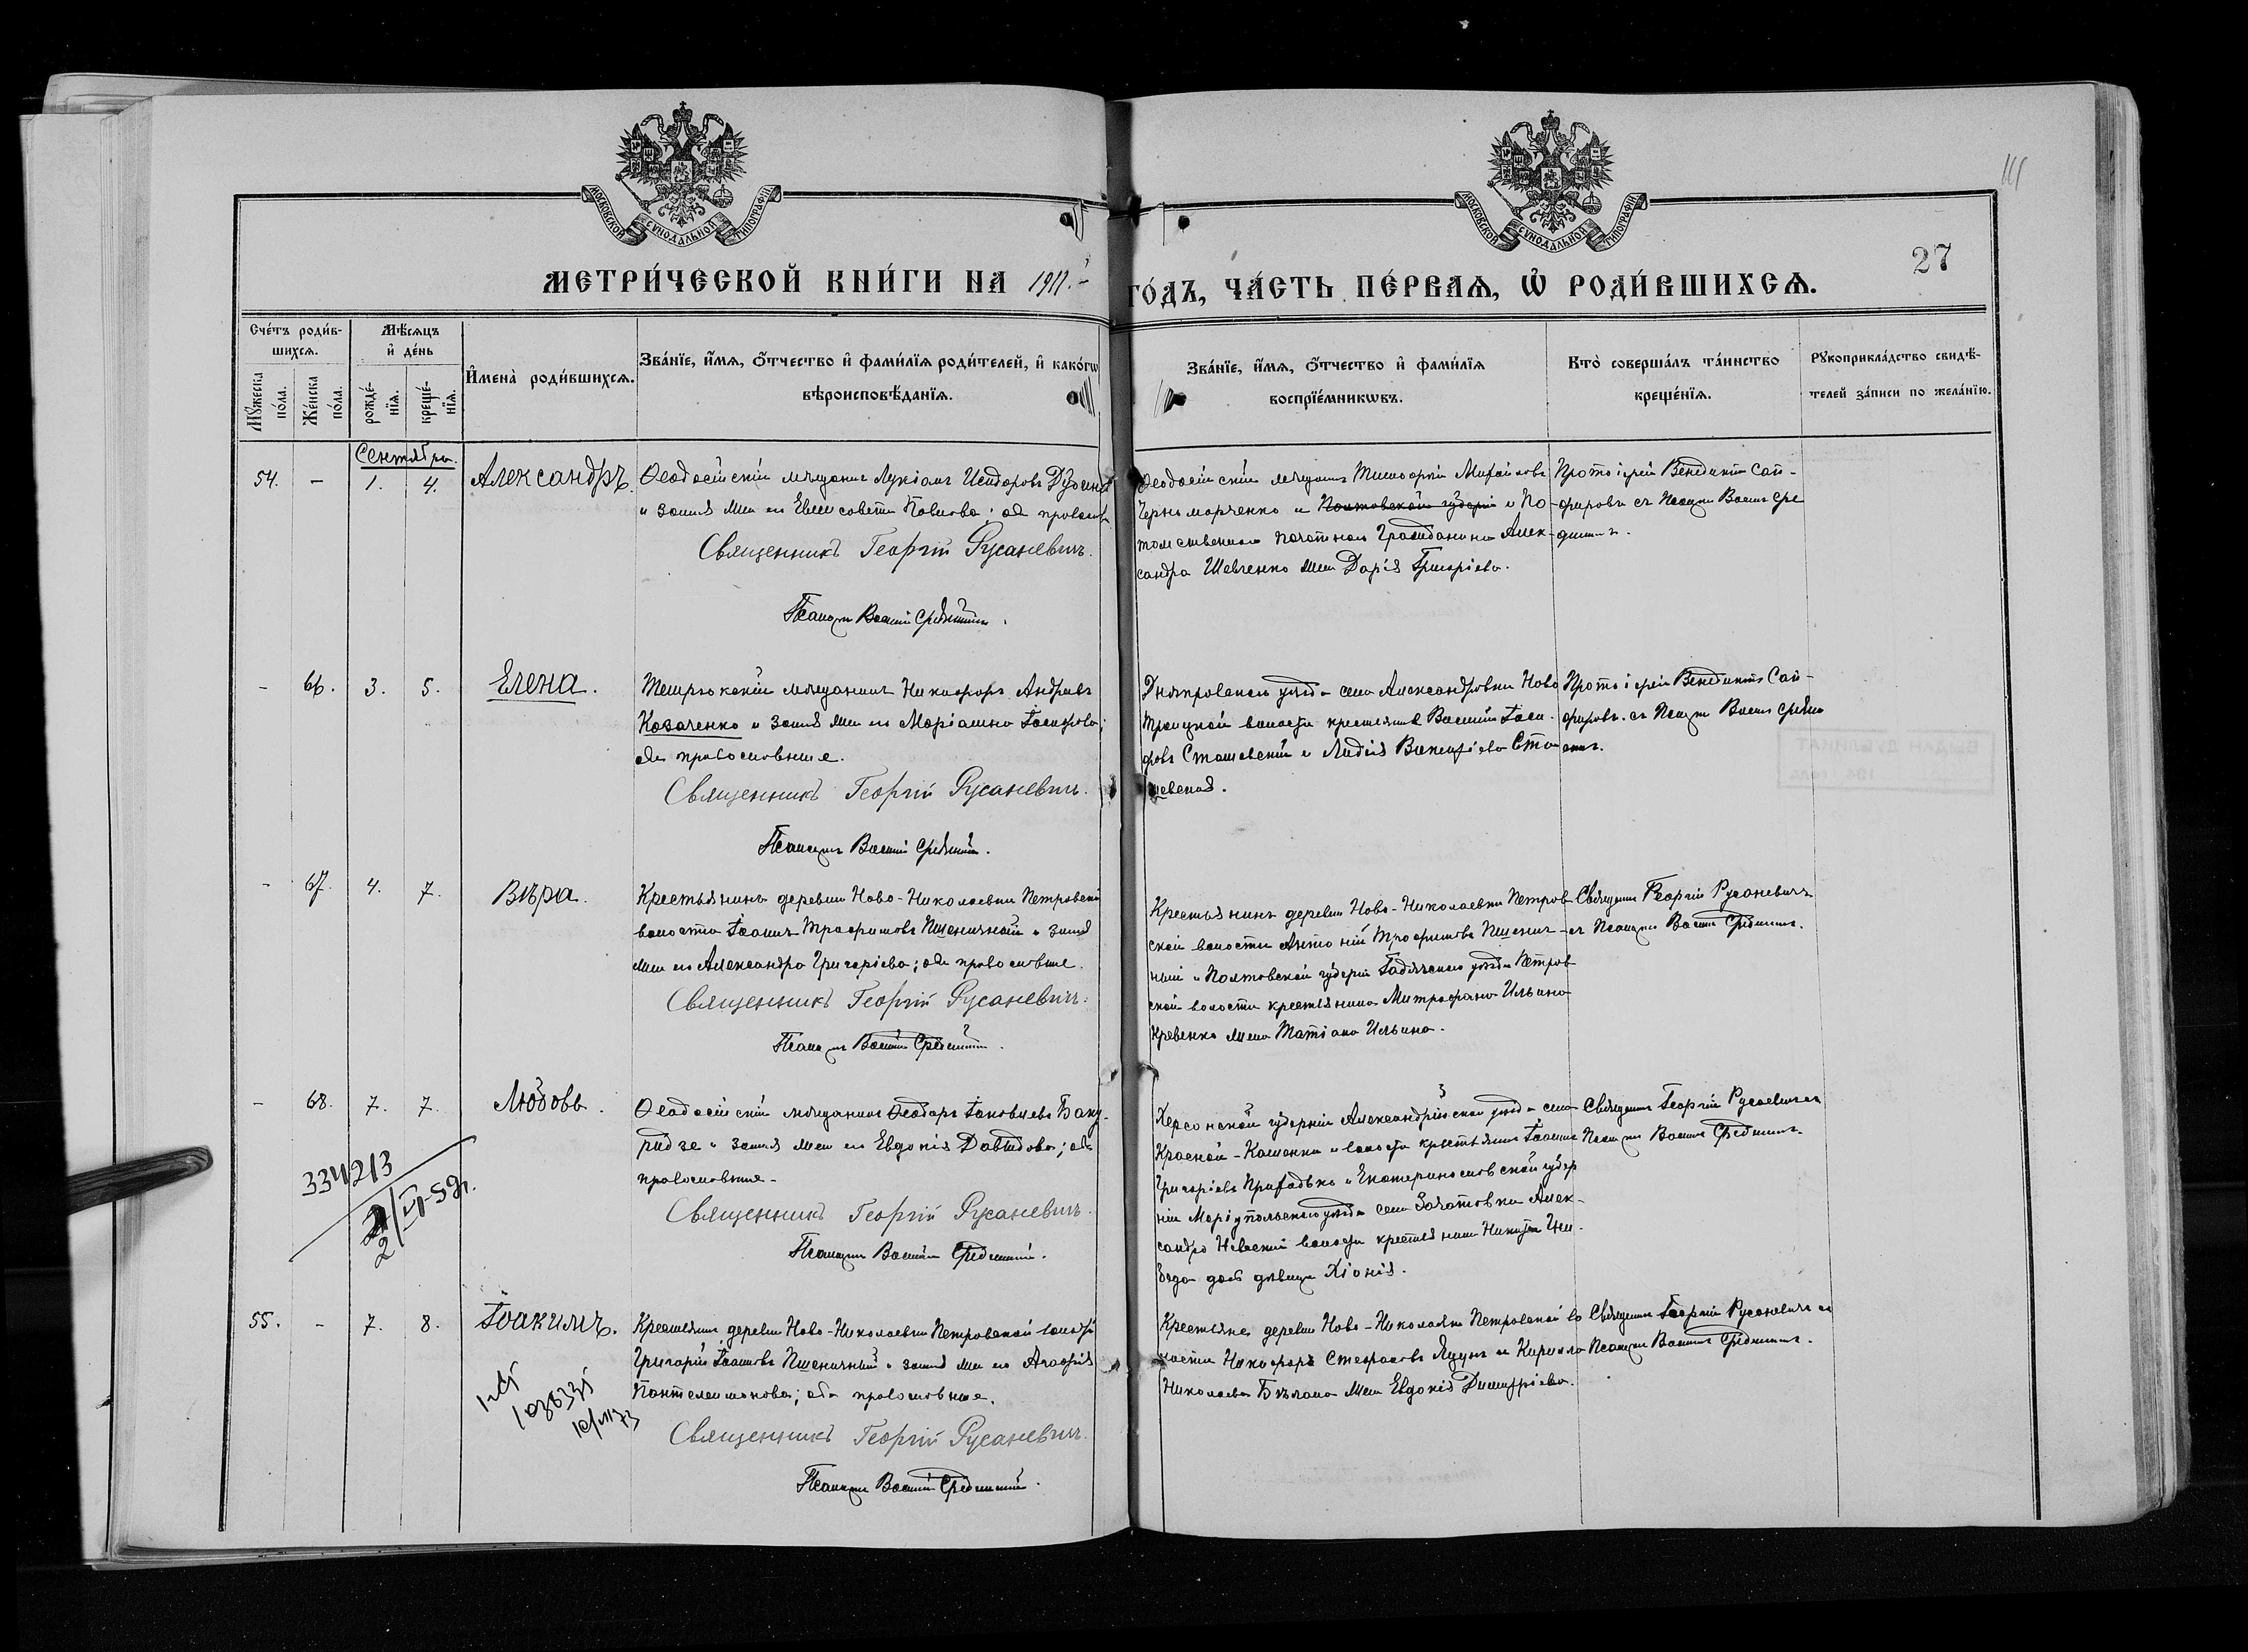 МОСКОВСКОЙ СѴНОДАЛЬНОЙ ТИПОГРАФІИ
МОСКОВСКОЙ СѴНОДАЛЬНОЙ ТИПОГРАФІИ
27
МЕТРИ́ЧЕСКОЙ КНИ́ГИ НА 1911.
ГО́ДЪ, ЧА́СТЬ ПЕ́РВАѦ, Ѿ РОДИ́ВШИХСѦ.
Сче́тъ роди́в-
шихсѧ.
Мꙋ́жеска по́ла.
Же́нска по́ла.
Мѣ́сѧцъ и҆ де́нь
рожде́-нїѧ.
креще́-нїѧ.
И҆мена̀ роди́вшихсѧ.
Зва́нїе, и҆́мѧ, ѻ҆́тчество и҆ фами́лїѧ роди́телей, и҆ како́гѡ
вѣроисповѣ́данїѧ.
Зва́нїе, и҆́мѧ, ѻ҆́тчество и҆ фами́лїѧ
воспрїе́мникѡвъ.
Кто̀ соверша́лъ та́инство
креще́нїѧ.
Рꙋкоприкла́дство свидѣ́-
телей за́писи по жела́нїю.
Сентябрь.
54. - 1. 4. Александръ.
Ѳеодосійскій мѣщанинъ Лукіанъ Исидоровъ
и зак. жена его Елисавета Павлова; оба правосл.
Священникъ Георгій Русаневичъ.
Псаломщ. Василій Срединскій.
Ѳеодосійскій мѣщанинъ Тимоѳей Михайловъ
Черноморченко и Полтавской губерніи и По-
томственнаго почотнаго Гражданина Алек-
сандра Шевченко жена Дарія Григоріева.
Протоіерей Венедиктъ Сап-
фировъ съ Псаломщ. Васил. Сре
динскимъ.
- 66. 3. 5. Елена.
Темрюкскій мѣщанинъ Никифоръ Андреевъ
Козаченко и зак. жена его Маріамна Іосифова;
оба православные.
Священникъ Георгій Русаневичъ.
Псаломщ. Василій Срединскій.
Днѣпровскаго уѣзда села Александровки Ново
Троицкой волости крестьянинъ Василій Іоси-
фовъ Сташевскій и Лидія Викентіева Ста
шевская.
Протоіерей Венедиктъ Сап-
фировъ съ Псаломщ. Васил. Средин
скимъ.
- 67. 4. 7. Вѣра.
Крестьянинъ деревни Ново-Николаевки Петровской
волости Іоаннъ Трофимовъ Пшеничный и зак.
жена его Александра Григоріева; оба православные.
Священникъ Георгій Русаневичъ.
Псаломщ. Василій Срединскій.
Крестьянинъ деревни Ново-Николаевки Петров
ской волости Антоній Трофимовъ Пшенич-
ный и Полтавской губерніи Гадячскаго уѣзда Петров
ской волости крестьянина Митрофана Ильина
Кревенко жена Татіана Ильина.
Священн. Георгій Русаневичъ
съ Псаломщ. Васил. Срединскимъ.
- 68. 7. 7. Любовь.
Ѳеодосійскій мѣщанинъ Ѳеодоръ Іаковлевъ Баку-
ридзе и зак. жена его Евдокія Давидова; оба
православные.
Священникъ Георгій Русаневичъ.
Псаломщ. Василій Срединскій.
Херсонской губерніи Александрійскаго уѣзда села
Красной-Каменки и волости крестьянинъ Іоаннъ
Григоріевъ Приходько и Екатеринославской губер
ніи Маріупольскаго уѣзда села Алек-
сандро Невской волости крестьянина Никиты Гни-
дочь дѣвица Хіонія.
Священн. Георгій Русаневичъ съ
Псаломщ. Васил. Срединскимъ.
334213
55. - 7. 8. Іоакимъ.
Крестьянинъ деревни Ново-Николаевки Петровской волости
Григорій Іоанновъ Пшеничный и зак. жена его Агафія
Пантелеимонова; оба православные.
Священникъ Георгій Русаневичъ.
Псаломщ. Василій Срединскій.
Крестьяне деревни Ново-Николаевки Петровской во
лости Никифоръ Стефановъ Яцунъ и Кирилла
Николаева Бѣлана жена Евдокія Димитріева.
Священн. Георгій Русаневичъ съ
Псаломщ. Васил. Срединскимъ.